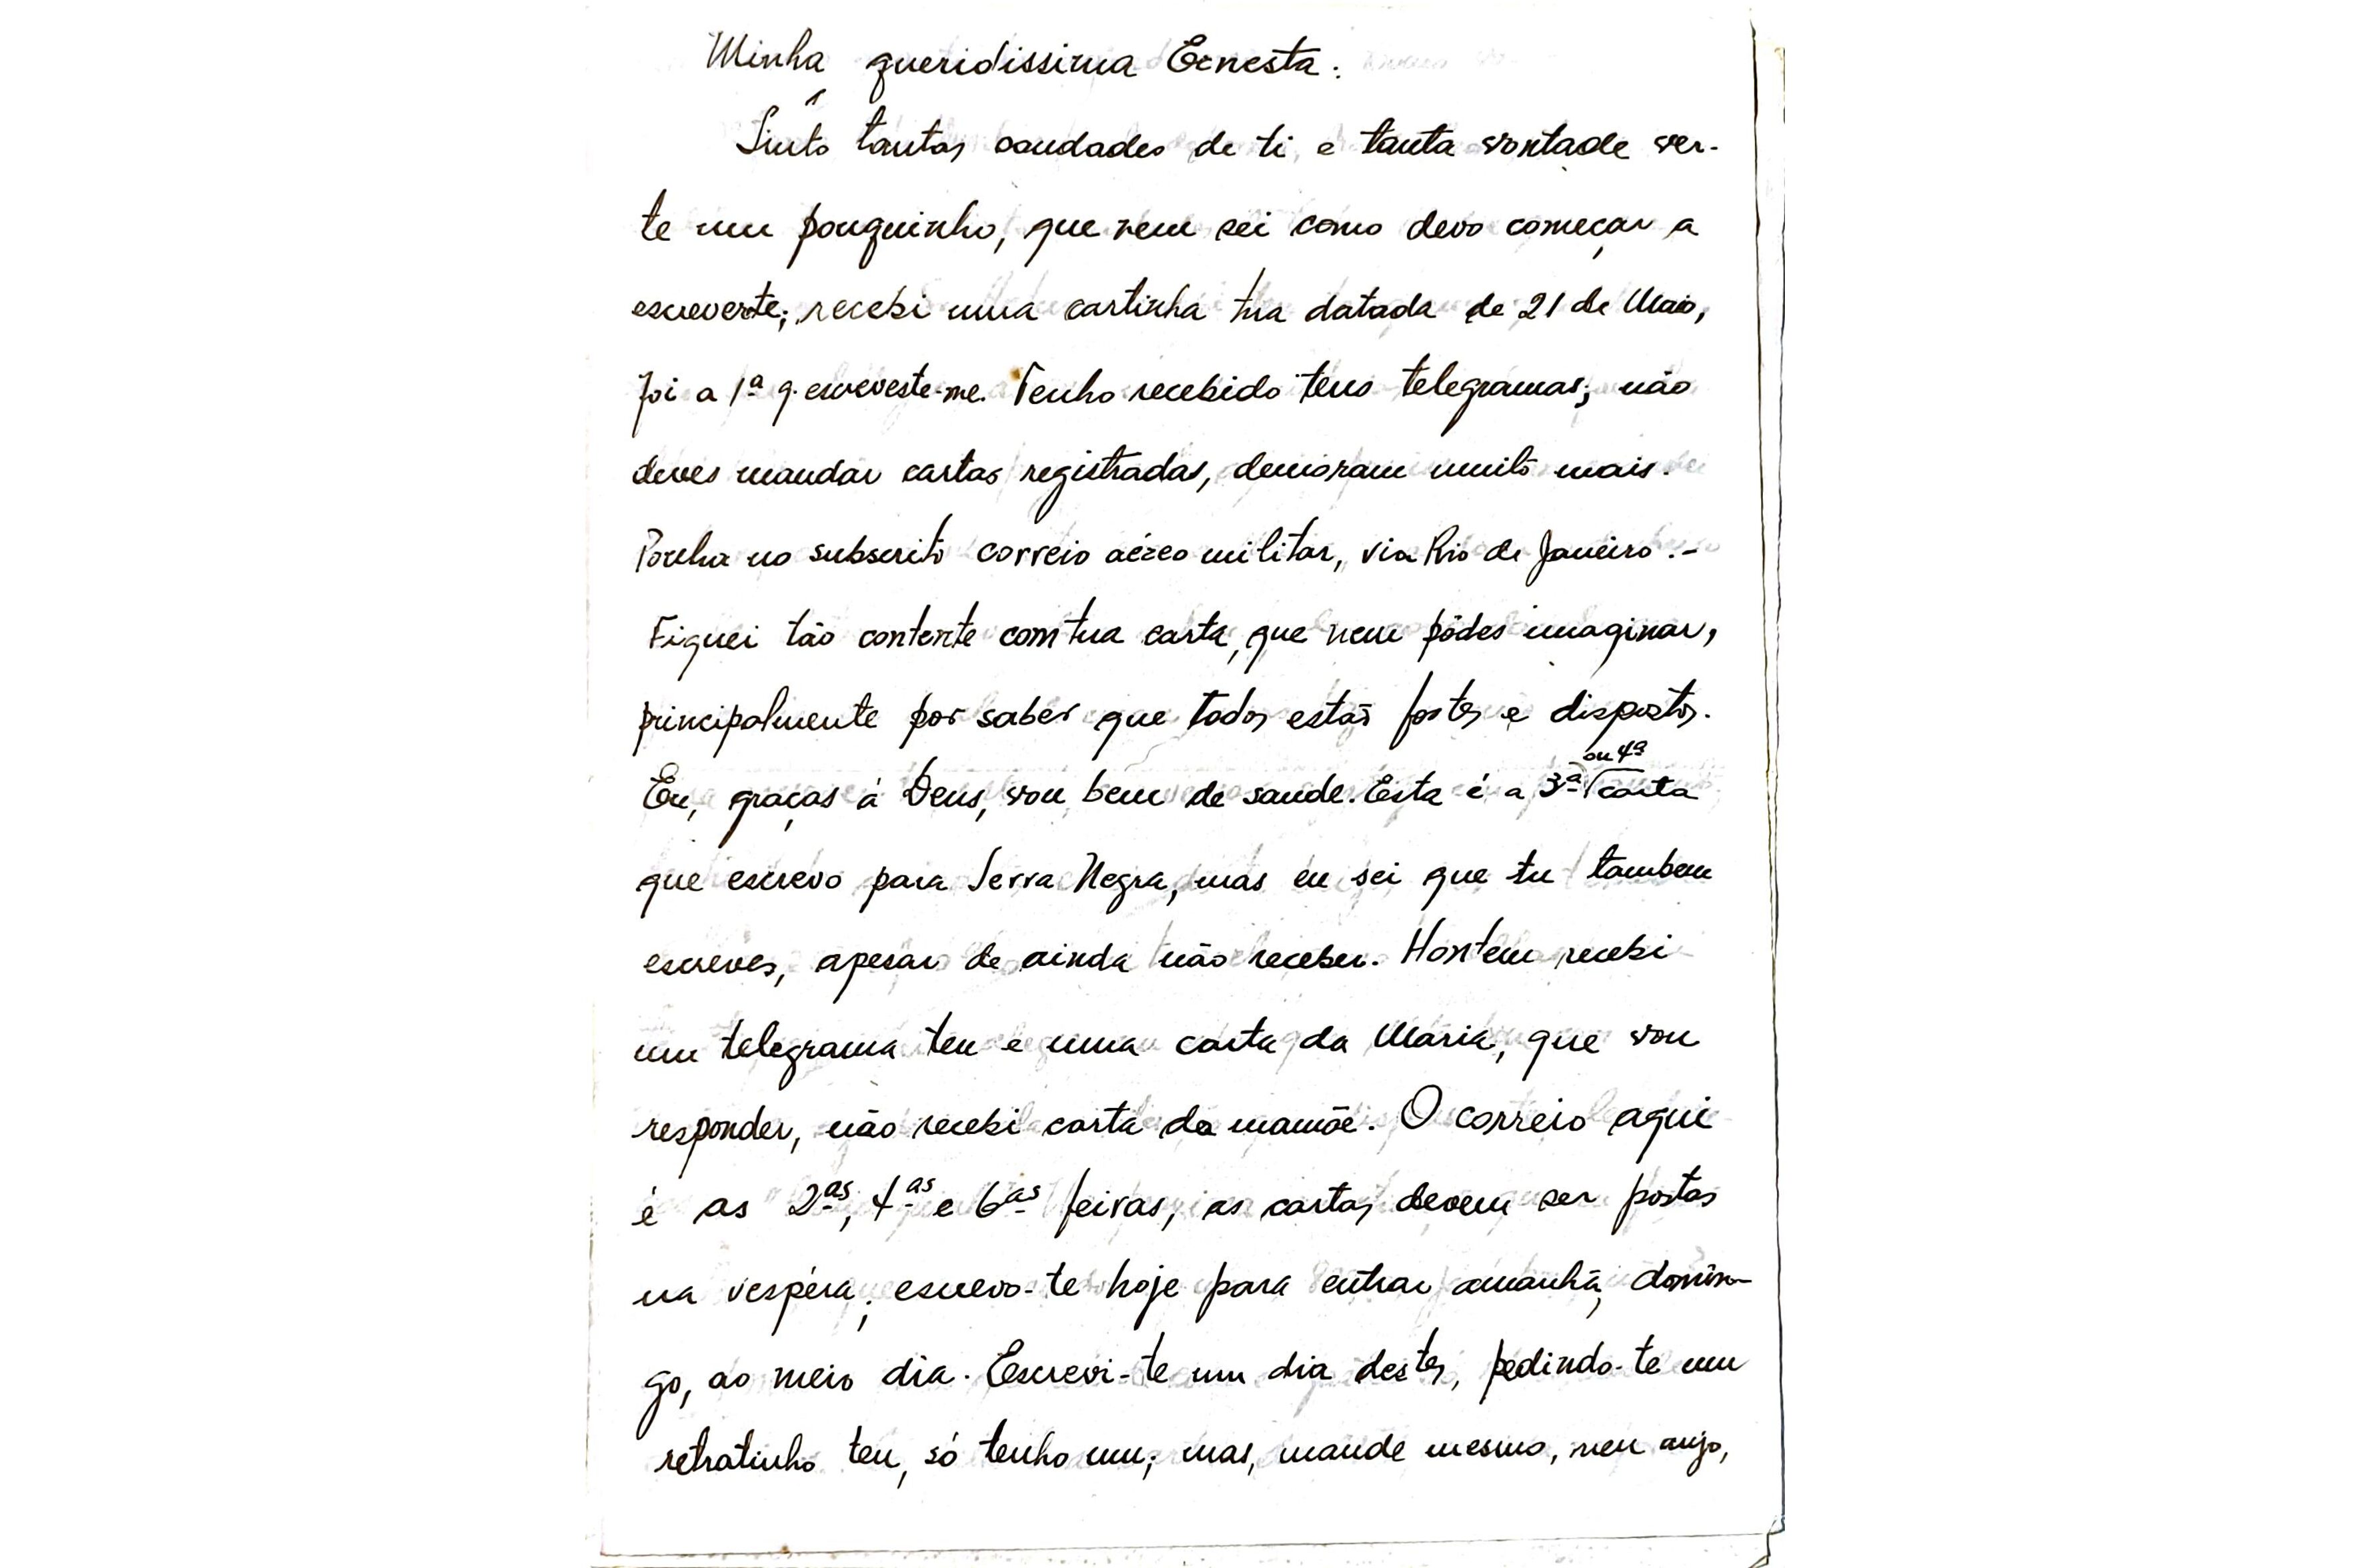 Minha queridissima Ernesta:
Sinto tantas saudades de ti e tanta vontade ver-
te um pouquinho, que nem sei como devo começar a
escreverte; recebi uma cartinha tua datada de 21 de Maio,
foi a 1ª q. escreveste-me. Tenho recebido teus telegramas; não
deves mandar cartas registradas, demoram muito mais.
Ponha no subscrito correio aéreo militar, via Rio de Janeiro.-
Fiquei tão contente com tua carta, que nem pôdes imaginar,
principalmente por saber que todos estão fortes e dispostos.
Eu, graças á Deus, vou bem de saude. Esta é a 3ª ou 4ª carta
que escrevo para Serra Negra, mas eu sei que tu tambem
escreves, apesar de ainda não receber. Hontem recebi
um telegrama teu e uma carta da Maria, que vou
responder, não recebi carta da mamãe. O correio aqui
é as 2as, 4as e 6as feiras, as cartas devem ser postas
na vespéra; escrevo-te hoje para entrar amanhã, domin-
go, ao meio dia. Escrevi-te um dia destes, pedindo-te um
retratinho teu, só tenho um; mas, mande mesmo, meu anjo,